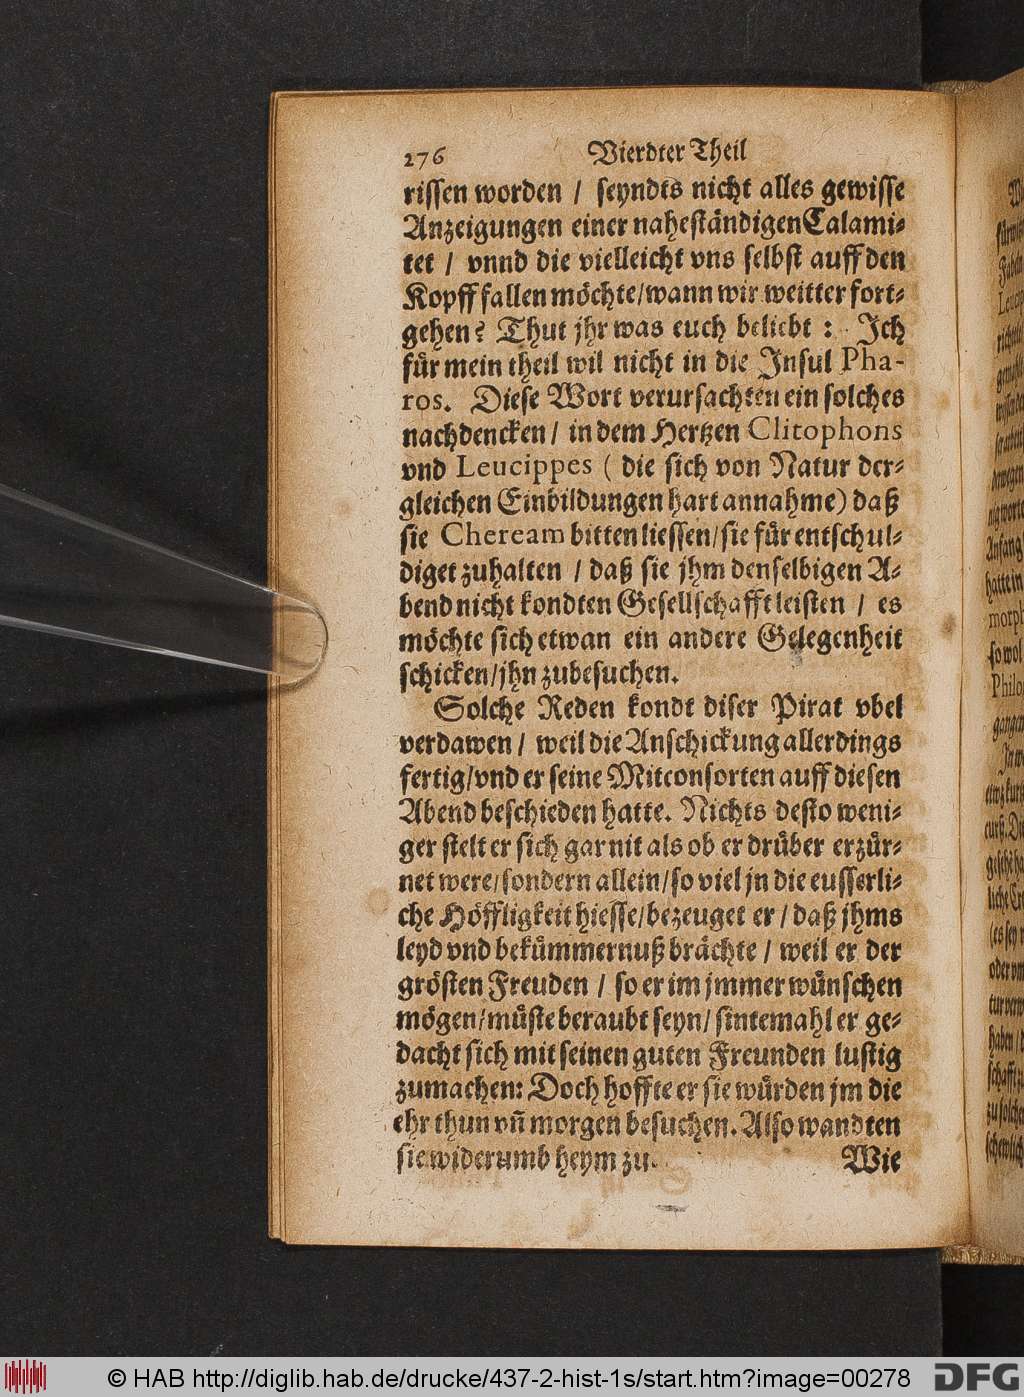 276 Vierdter Theil
rissen worden / seyndts nicht alles gewisse
Anzeigungen einer naheständigen Calami-
tet / vnnd die vielleicht vns selbst auff den
Kopff fallen möchte/wann wir weitter fort-
gehen? Thut jhr was euch beliebt : Ich
für mein theil wil nicht in die Insul Pha-
ros. Diese Wort verursachten ein solches
nachdencken / in dem Hertzen Clitophons
vnd Leucippes ( die sich von Natur der-
gleichen Einbildungen hart annahme) daß
sie Cheream bitten liessen/sie für entschul-
diget zuhalten / daß sie jhm denselbigen A-
bend nicht kondten Gesellschafft leisten / es
möchte sich etwan ein andere Gelegenheit
schicken/jhn zubesuchen.
Solche Reden kondt diser Pirat vbel
verdawen / weil die Anschickung allerdings
fertig/vnd er seine Mitconsorten auff diesen
Abend beschieden hatte. Nichts desto weni-
ger stelt er sich gar nit als ob er drüber erzür-
net were/sondern allein/so viel jn die eusserli-
che Höffligkeit hiesse/bezeuget er / daß jhms
leyd vnd bekümmernuß brächte / weil er der
grösten Freuden / so er im jmmer wünschen
mögen/müste beraubt seyn/ sintemahl er ge-
dacht sich mit seinen guten Freunden lustig
zumachen: Doch hoffte er sie würden jm die
ehr thun vn̄ morgen besuchen. Also wandten
sie widerumb heym zu. Wie
© HAB http://diglib.hab.de/drucke/437-2-hist-1s/start.htm?image=00278 DFG